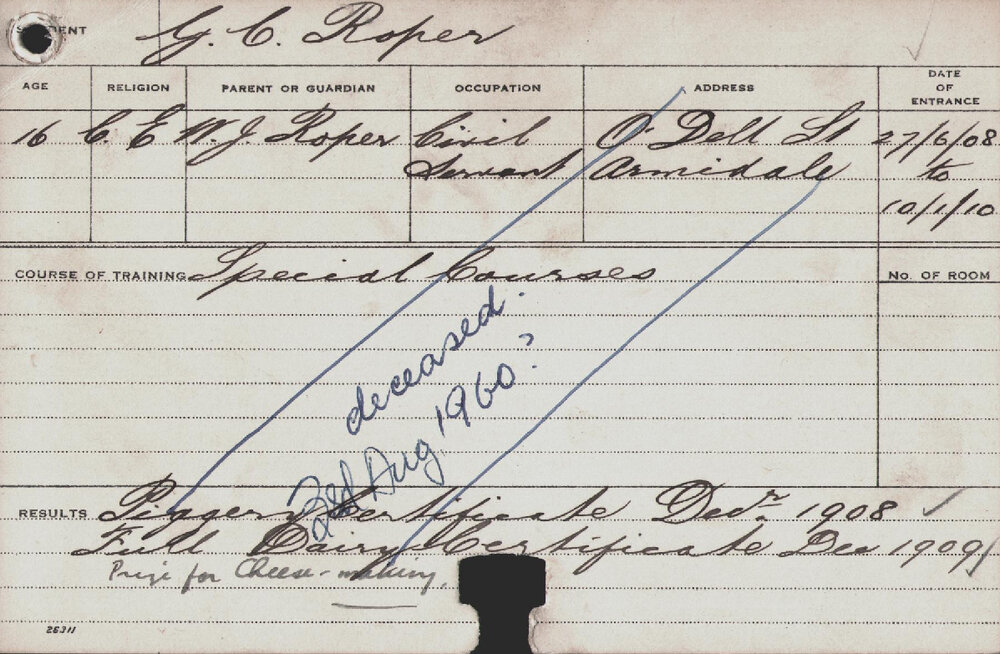 STUDENT G. C. Roper
AGE RELIGION PARENT OR GUARDIAN OCCUPATION ADDRESS DATE OF ENTRANCE
16 C. E W. J. Roper Civil Servant O'Dell St Armidale 27/6/08 to 10/1/10
COURSE OF TRAINING Special Courses
No. OF ROOM
deceased.
Aug 1960?
RESULTS Piggery Certificate Decr. 1908
Full Dairy Certificate Dec 1909
Prize for Cheese-making.
25311